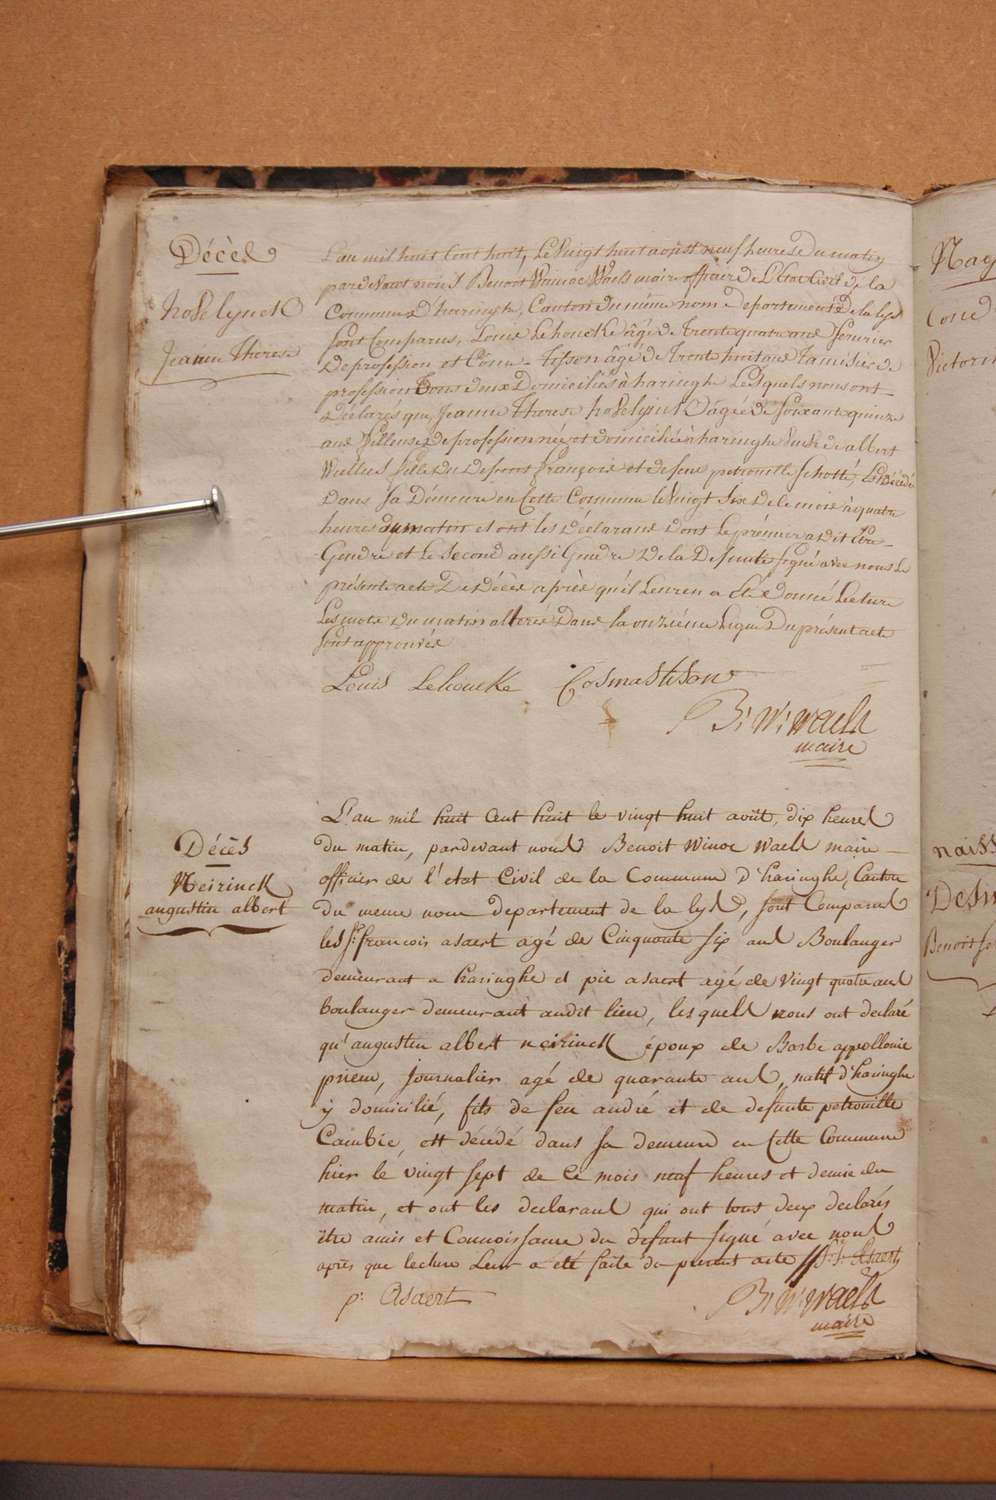 Décès
hoselynck
Jeanne Therese
L'an mil huit cent huit, Le Vingt huit aoust neuf heures du matin
pardevant nous Benoit Winoc Waels maire officier de L'Etat Civil de la
Commune d'haringhe, Canton du même nom Departement de la lys
sont Comparus, Louis Lehoucke âgé de Trente quatre ans
De profession et Côme Tisson âgé de Trente huit ans Tamisier de
profession Tous deux Domiciliés à haringhe Lesquels nous ont
Déclarés que Jeanne Therese hoselynck âgée de Soixante quinze
ans fileuse de profession née et domiciliée à haringhe de albert
fille du defunt françois et de feue petronille Schotté, Est Décédé
Dans Sa Demeure en Cette Commune le Vingt Six de ce mois à quatre
heures du matin et ont les Déclarans dont Le prémier a dit être
Gendre et Le Second aussi Gendre De la Defunte signé avec nous Le
présent acte De Décès après qu'il Leur en a Eté Donné Lecture
Les mots du matin alterés Dans la onzième Ligne Du présent acte
sont approuvés
Louis Lehoucke Cosmas tison
B: W: Waels
maire
Décès
Neirinck
augustin albert
L'an mil huit Cent huit le vingt huit août, dix heures
du matin, pardevant nous Benoit Winoc Waels maire
officier de l'état Civil de la Commune d'haringhe, Canton
du meme nom departement de la lys, sont Comparus
les Sr. françois asaert agé de Cinquante six ans Boulanger
demeurant a haringhe et pie asaert agé de vingt quatre ans
boulanger demeurant audit lieu, lesquels nous ont declaré
qu'augustin albert neirinck époux de Barbe appollonie
prieur, Journalier agé de quarante ans, natif d'haringhe
y domicilié, fils de feu andré et de defunte petronille
Cambié, est décédé dans sa demeure en Cette Commune
hier le vingt sept de ce mois neuf heures et demie du
matin, et ont les declarans qui ont tous deux declarés
être amis et Connoissance du defunt signé avec nous
après que lecture Leur a été faite du present acte f: j: Asaert
p: Asaert
B: W: Waels
maire
naiss
Desm
Benoit